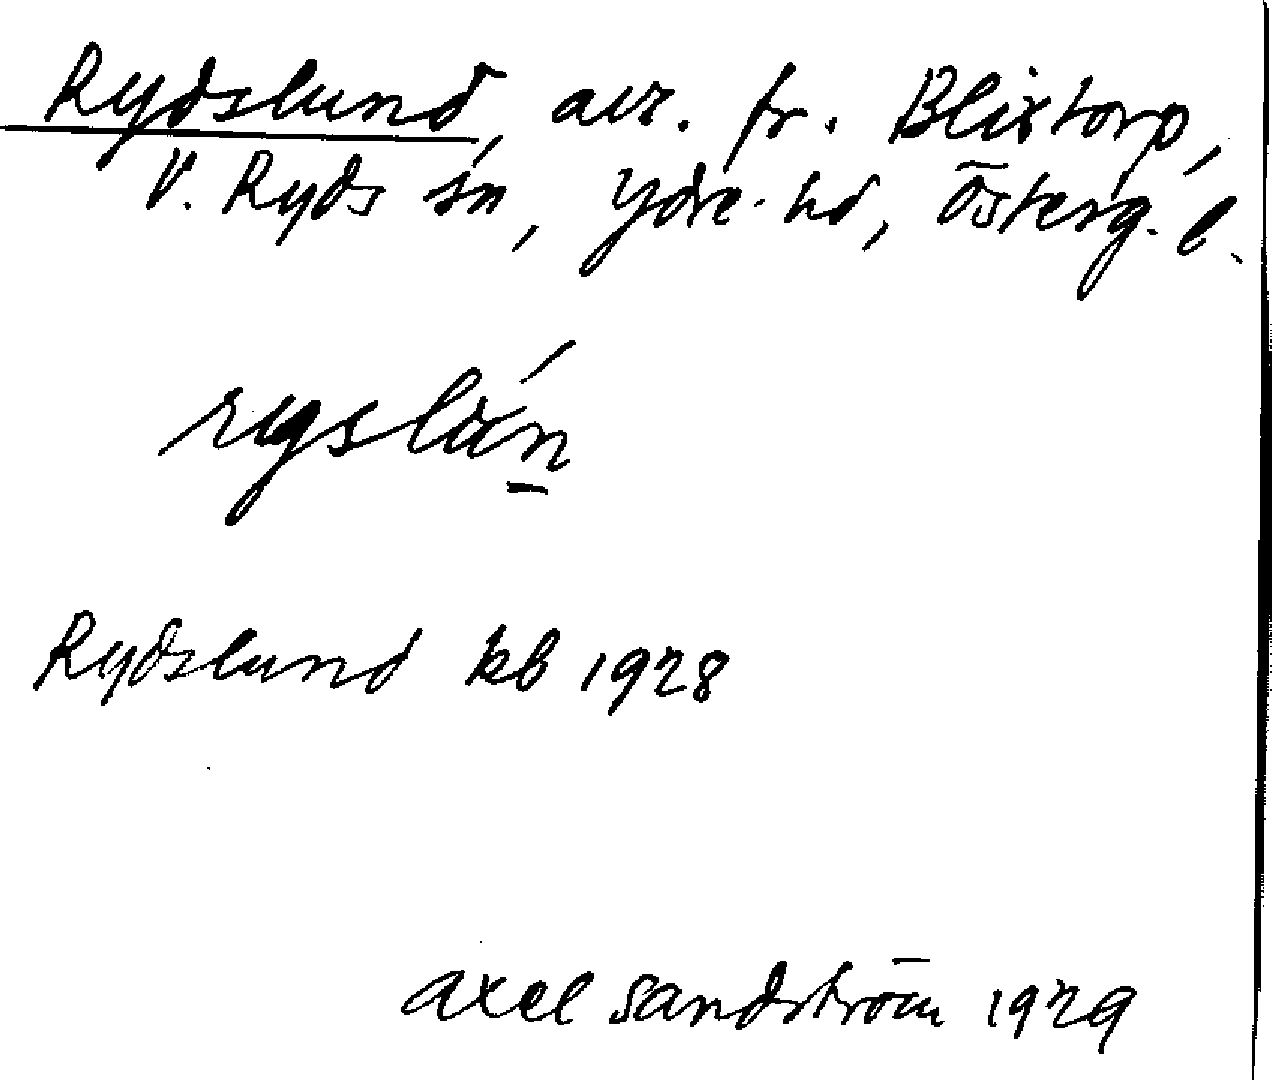 Rydslund, avs. fr. Blixtorp,
V. Ryds sn, Ydre hd, Österg. l.
rygslún
Rydslund kb 1928
Axel Sandström 1929